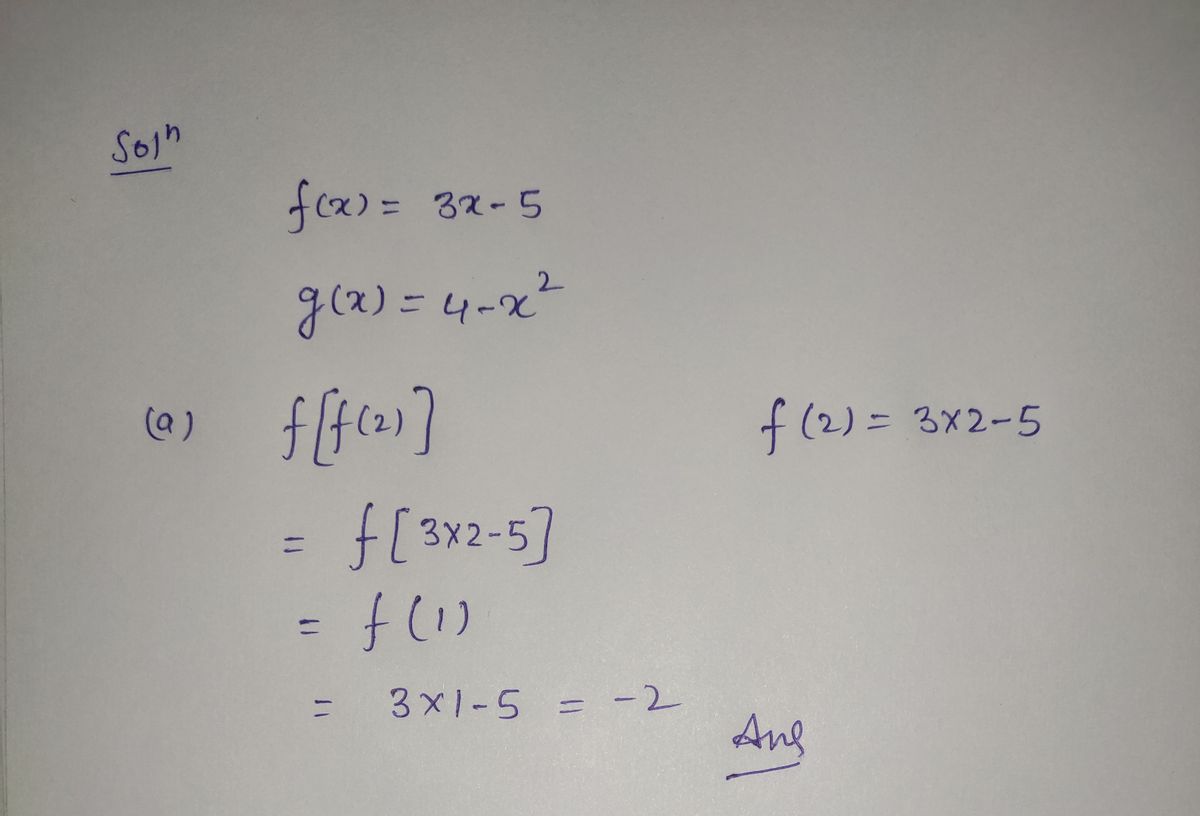 Solⁿ
f(x) = 3x - 5
g(x) = 4 - x²
(a) f[f(2)] f(2) = 3×2-5
= f[3×2-5]
= f(1)
= 3×1-5 = -2
Ans